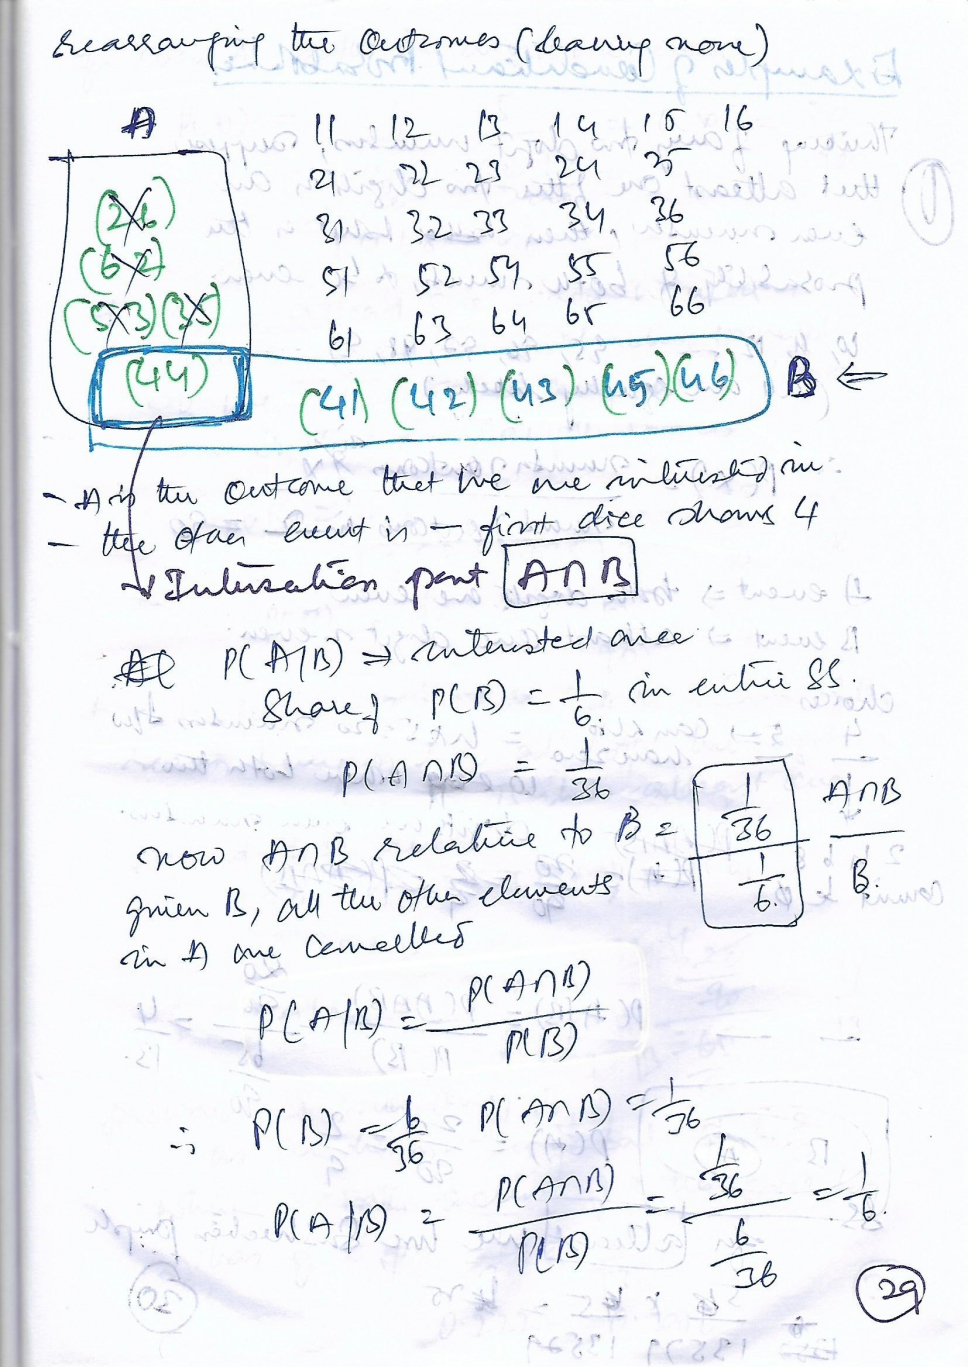 Rearranging the Outcomes (leaving none)
A
11 12 13 14 15 16
21 22 23 24 25
(26)
31 32 33 34 36
(62)
51 52 54 55 56
(53) (35)
61 63 64 65 66
(44)
(41) (42) (43) (45) (46) B ←
- A is the Outcome that we are interested in
- the other event is — first dice shows 4
→ Intersection part A∩B
P(A|B) ⇒ interested once
Share of P(B) = 1/6 in entire SS.
P(A∩B) = 1/36
now A∩B relative to B = (1/36)/(1/6) A∩B/B.
given B, all the other elements
in A are Cancelled
P(A|B) = P(A∩B)/P(B)
∴ P(B) = 6/36 P(A∩B) = 1/36
P(A|B) = P(A∩B)/P(B) = (1/36)/(6/36) = 1/6.
29